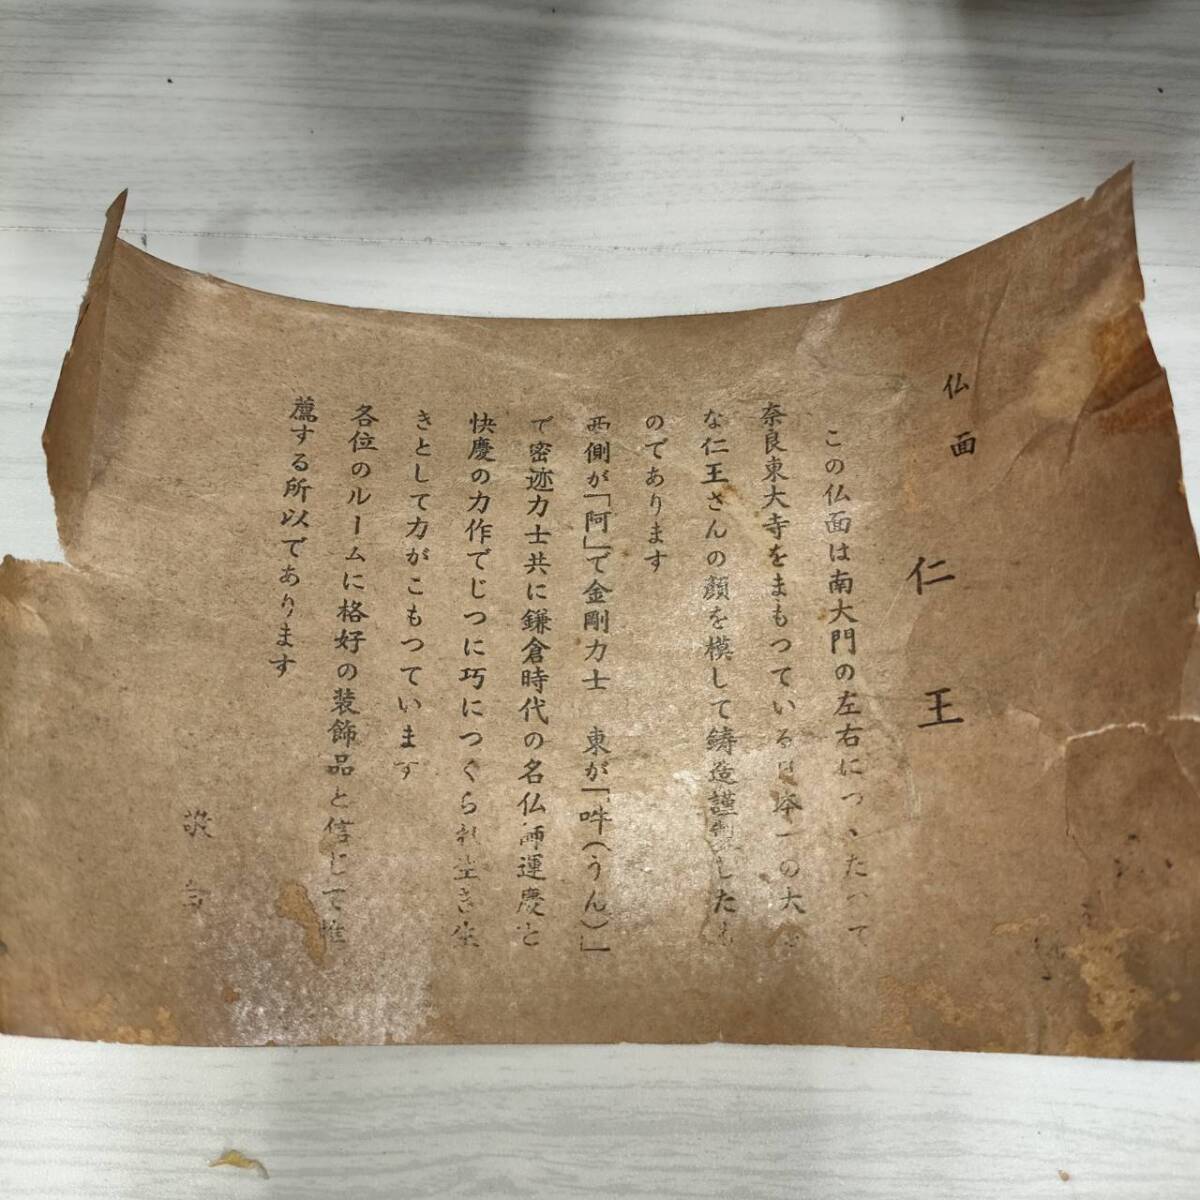 仏面
仁王
この仏面は南大門の左右につたって
奈良東大寺をまもつている日本一の大
な仁王さんの顔を模して鋳造謹製したも
のであります
西側が「阿」で金剛力士　東が「吽（うん）」
で密迹力士共に鎌倉時代の名仏師運慶と
快慶の力作でじつに巧につくられ生き生
きとして力がこもつています
各位のルームに格好の装飾品と信じて推
薦する所以であります
敬白